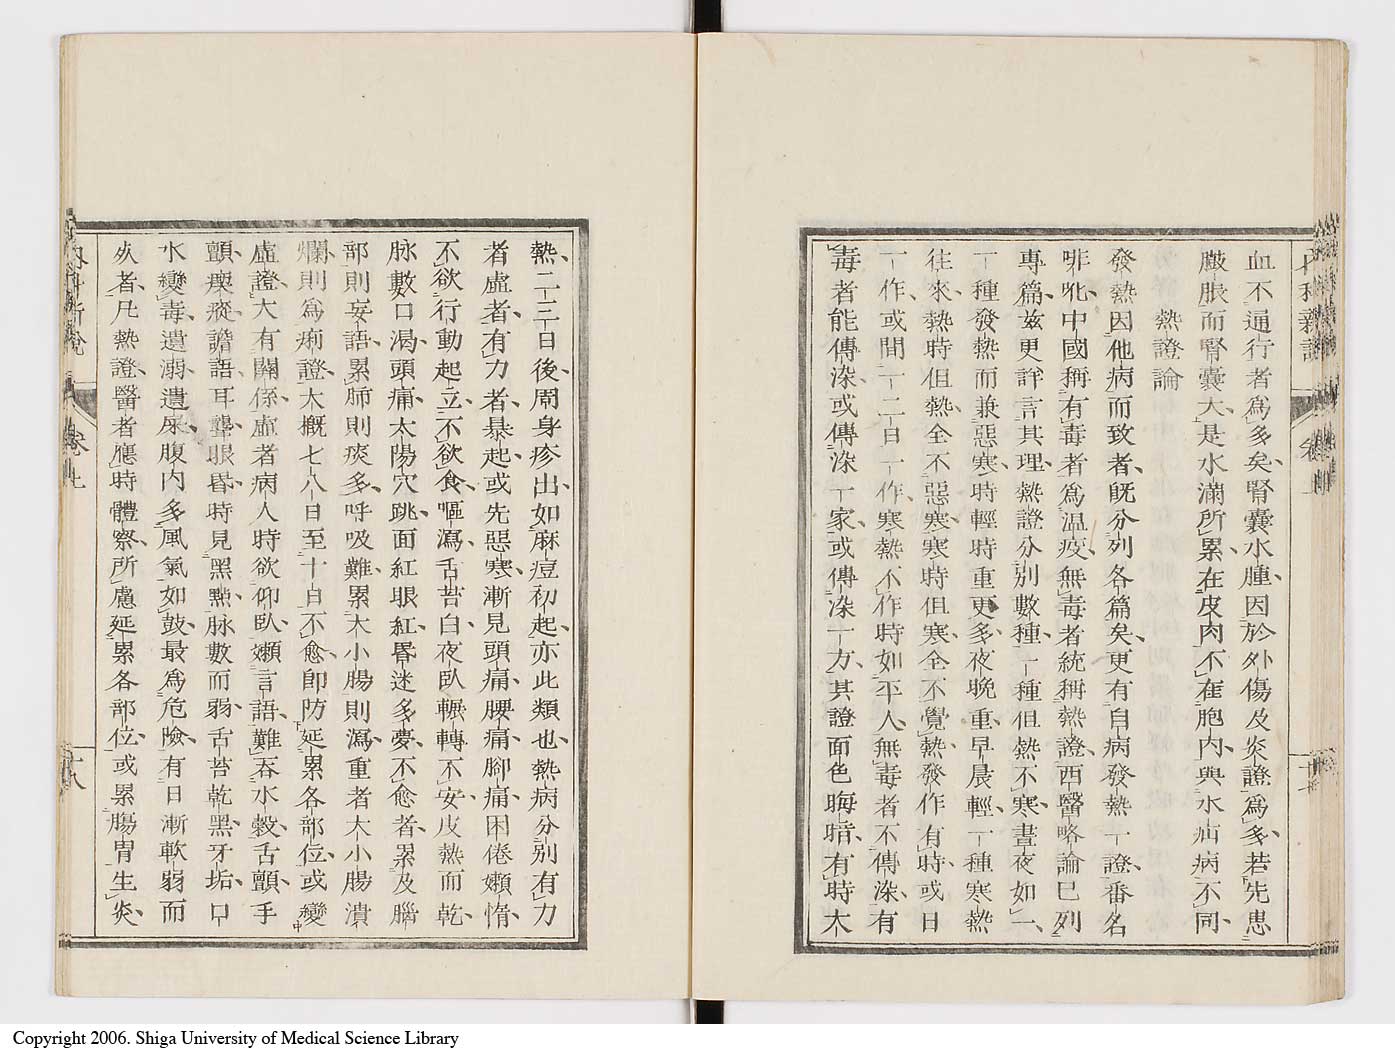 血不通行者爲多矣腎囊水腫因於外傷及炎證爲多若先患
臌脹而腎囊大是水滿所累在皮肉不在胞內與水疝病不同
熱證論
發熱因他病而致者既分列各篇矣更有自病發熱一證番名
啡吪中國稱有毒者爲温疫無毒者統稱熱證西醫略論已列
專篇茲更詳言其理熱證分別數種一種但熱不寒晝夜如一
一種發熱而兼惡寒時輕時重更多夜晚重早晨輕一種寒熱
往來熱時但熱全不惡寒寒時但寒全不覺熱發作有時或日
一作或間一二日一作寒熱不作時如平人無毒者不傳染有
毒者能傳染或傳染一家或傳染一方其證面色晦暗有時大
熱二三日後周身疹出如麻痘初起亦此類也熱病分別有力
者虛者有力者暴起或先惡寒漸見頭痛腰痛腳痛困倦嬾惰
不欲行動起立不欲食嘔瀉舌苔白夜臥輾轉不安皮熱而乾
脉數口渴頭痛太陽穴跳面紅眼紅昏迷多夢不愈者累及腦
部則妄語累肺則痰多呼吸難累大小腸則瀉重者大小腸潰
爛則爲痢證大概七八日至十日不愈卽防延累各部位或變
虛證大有關係虛者病人時欲仰臥嬾言語難吞水穀舌顫手
顫瘈瘲譫語耳聾眼昏時見黑點脉數而弱舌苔乾黑牙垢口
水變毒遺溺遺屎腹內多風氣如鼓最爲危險有日漸軟弱而
死者凡熱證醫者應時體察所慮延累各部位或累腸胃生炎
卷七
十八